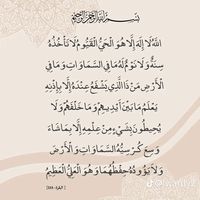 بسم الله الرحمن الرحيم
اللَّهُ لَا إِلَٰهَ إِلَّا هُوَ الْحَيُّ الْقَيُّومُ لَا تَأْخُذُهُ
سِنَةٌ وَلَا نَوْمٌ لَهُ مَا فِي السَّمَاوَاتِ وَمَا فِي
الْأَرْضِ مَنْ ذَا الَّذِي يَشْفَعُ عِنْدَهُ إِلَّا بِإِذْنِهِ
يَعْلَمُ مَا بَيْنَ أَيْدِيهِمْ وَمَا خَلْفَهُمْ وَلَا
يُحِيطُونَ بِشَيْءٍ مِنْ عِلْمِهِ إِلَّا بِمَا شَاءَ
وَسِعَ كُرْسِيُّهُ السَّمَاوَاتِ وَالْأَرْضَ
وَلَا يَئُودُهُ حِفْظُهُمَا وَهُوَ الْعَلِيُّ الْعَظِيمُ